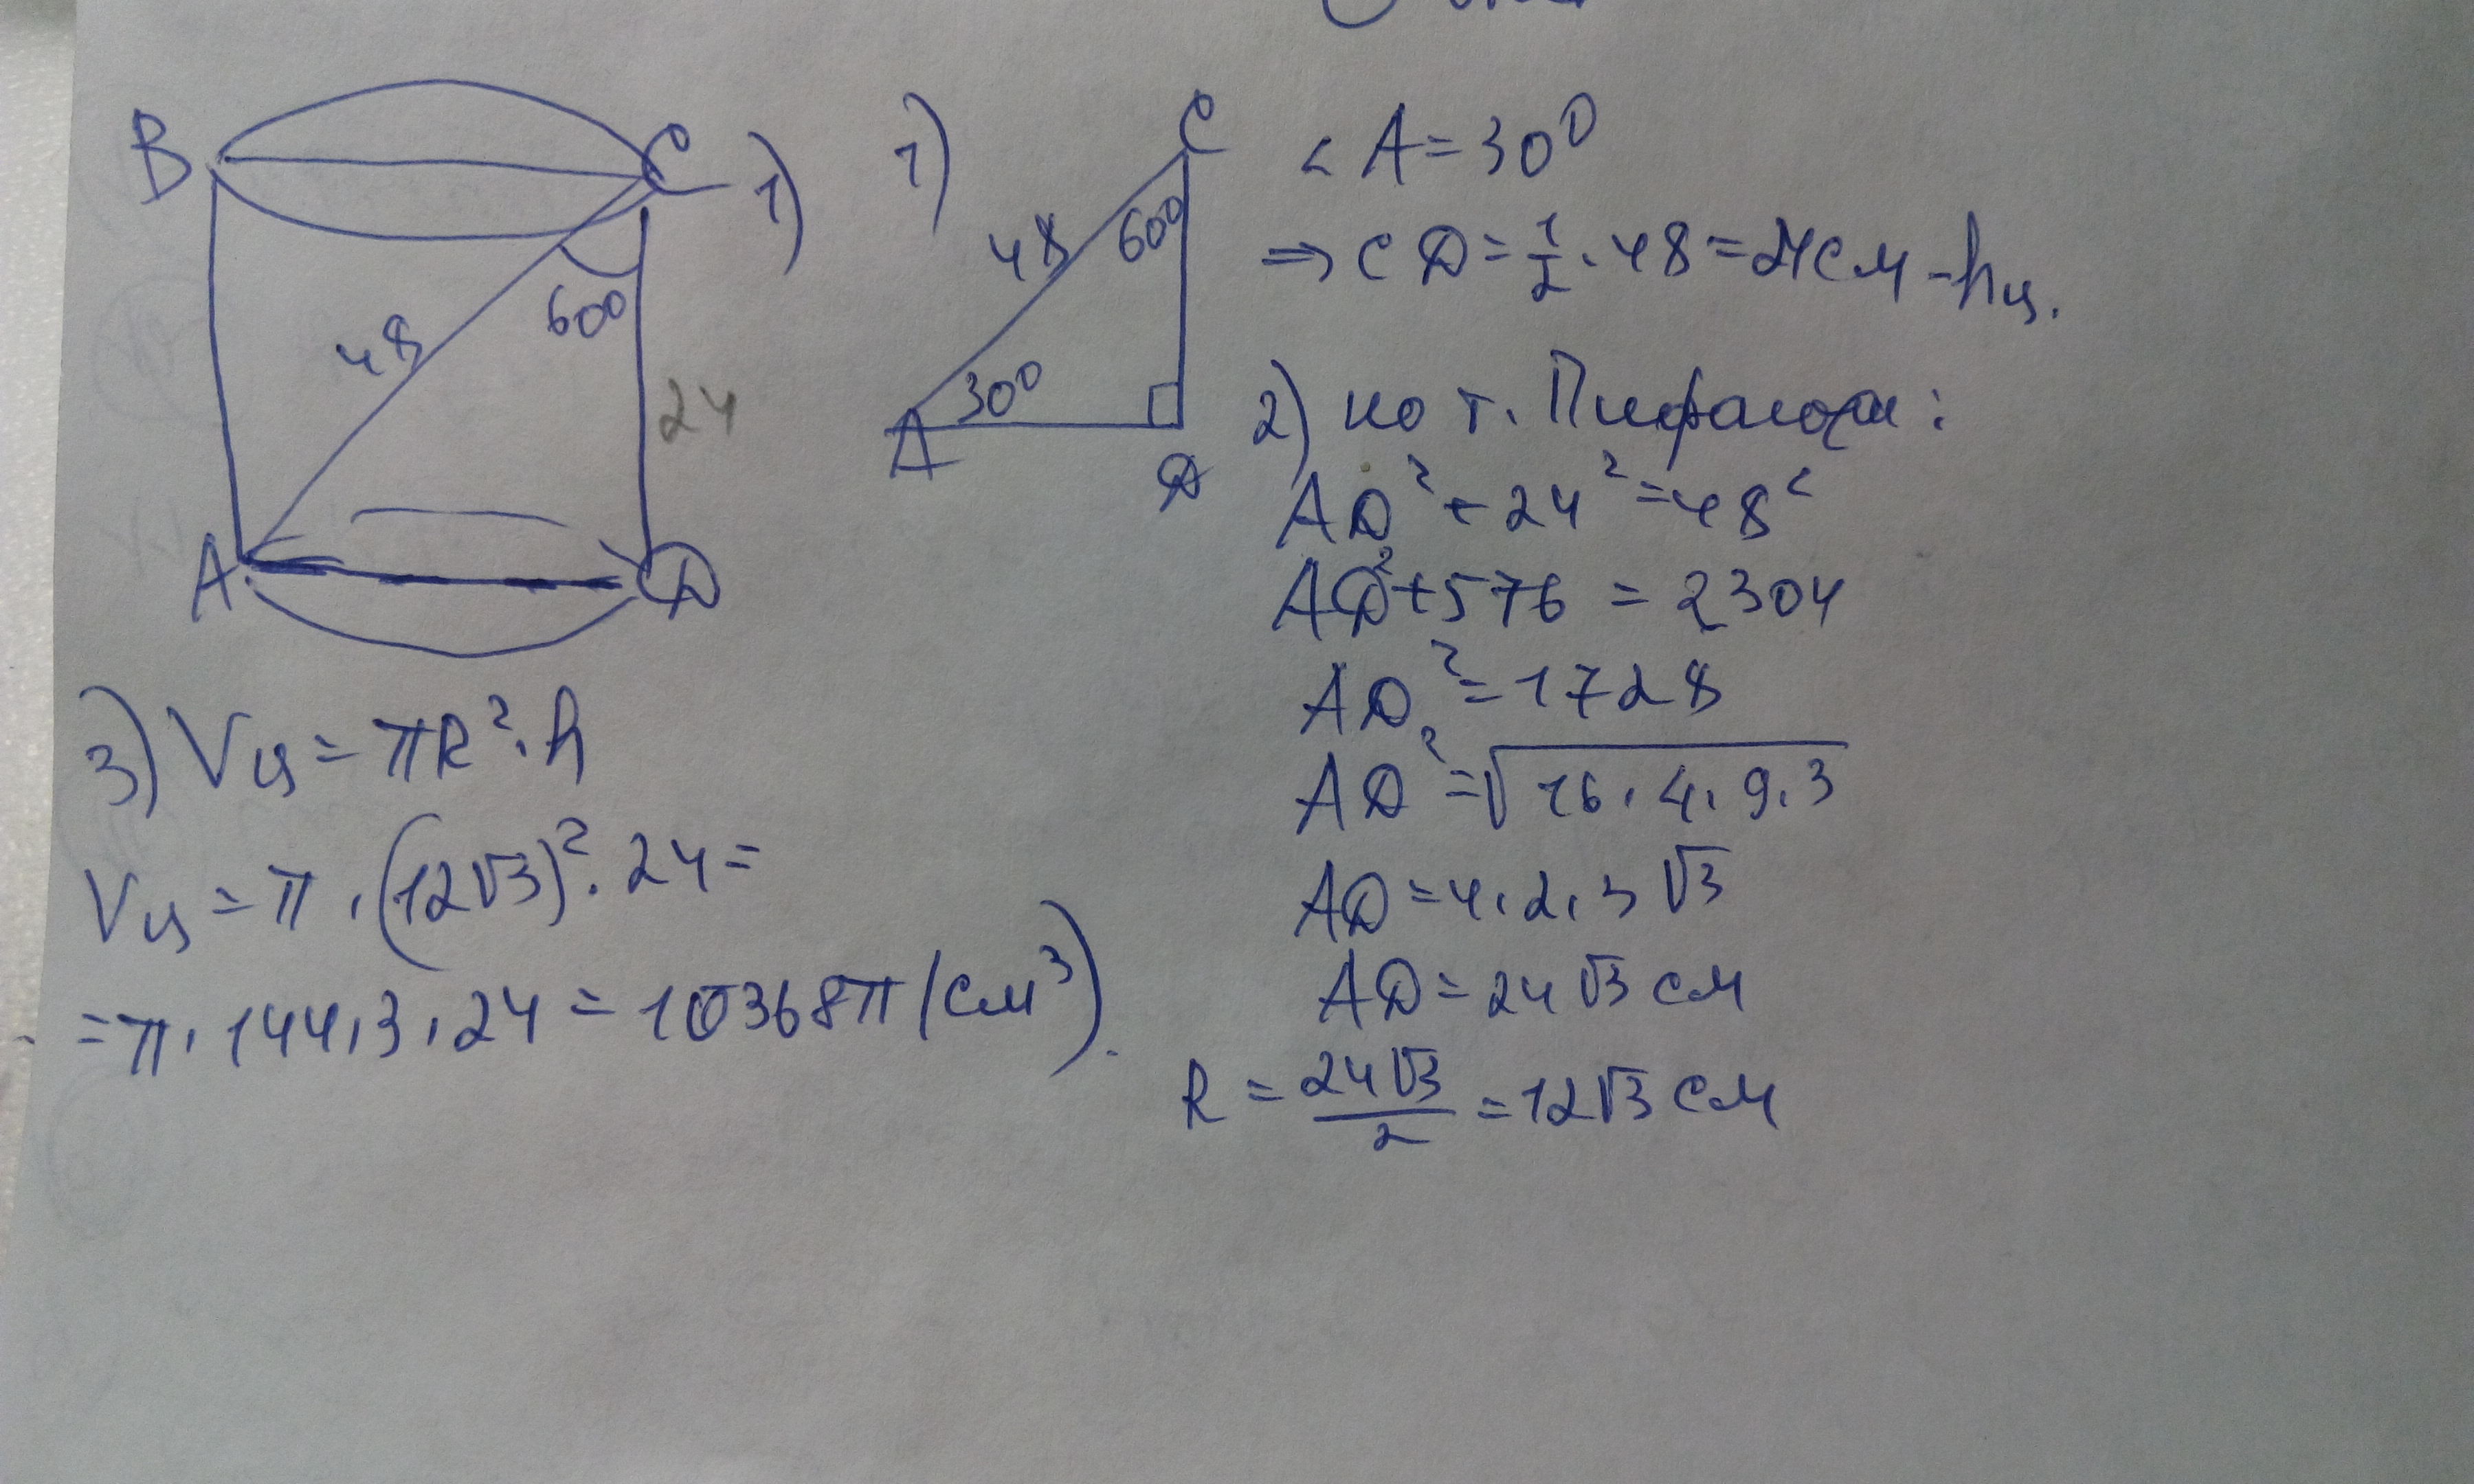 B
C
1)
48
60°
24
A
D
1)
C
48
60°
30°
A
D
< A = 30°
⇒ CD = 1/2 · 48 = 24 см - hц.
2) по т. Пифагора:
AD² + 24² = 48²
AD² + 576 = 2304
AD² = 1728
AD² = √16 · 4 · 9 · 3
AD = 4 · 2 · 3 √3
AD = 24√3 см
R = 24√3/2 = 12√3 см
3) Vц = πR² · h
Vц = π · (12√3)² · 24 =
= π · 144 · 3 · 24 = 10368π (см³).